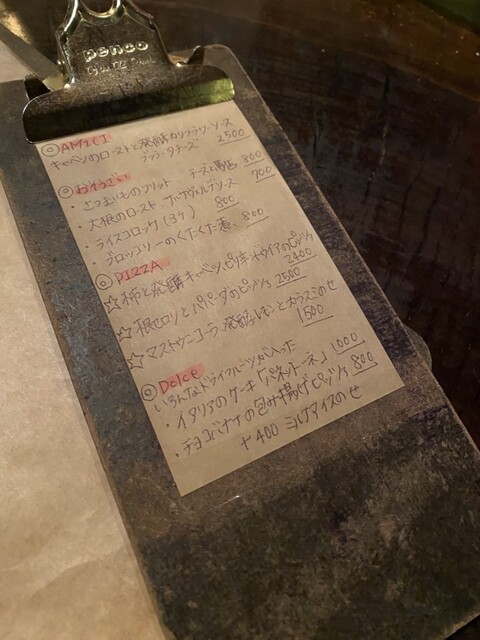 penco
◎AMICI
キャベツのローストと発酵カリフラワーソース
ブラータチーズ 2500
◎おやさい
・さつまいものフリット チーズと 800
・大根のロースト サルサヴェルデソース 700
・ライスコロッケ(3ケ) 800
・ブロッコリーのくたくた煮 800
◎PIZZA
☆柿と発酵キャベツ、ピリ辛 のピッツァ
2400
☆根セロリと のピッツァ 2500
☆マストゥニコーラ 発酵レモンとカラスミのせ
1500
◎Dolce
いろんなドライフルーツが入った
・イタリアのケーキ「パネットーネ」 1000
・チョコバナナの包み揚げピッツァ 800
+400 ミルクアイスのせ